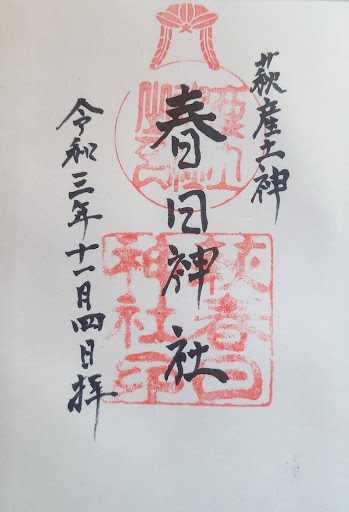 萩産土神
春日神社
令和三年十一月四日拝
萩春日
神社印